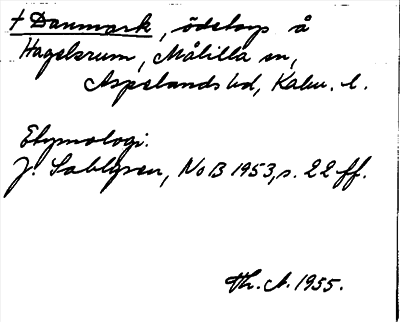 † Danmark, ödetorp å
Hagelsrum, Målilla sn,
Aspelands hd, Kalm. l.
Etymologi.
J. Sahlgren, NoB 1953, s. 22 ff.
Th. A. 1955.